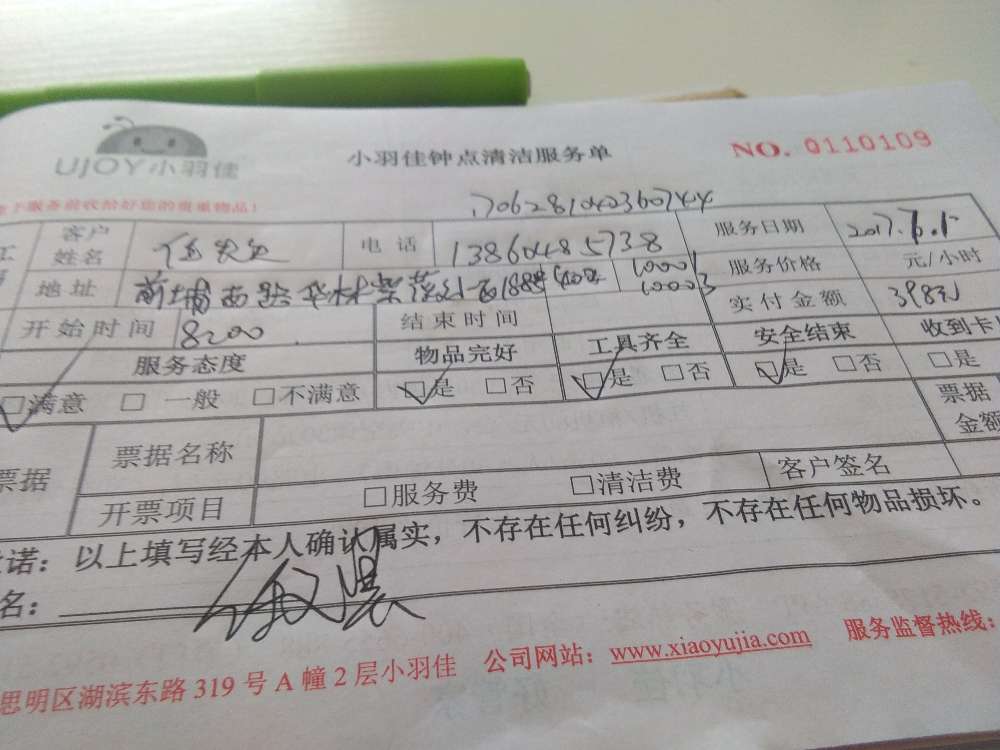 UJOY小羽佳
小羽佳钟点清洁服务单
NO. 0110109
服务前收拾好您的贵重物品!
1706281042360744
客户姓名
电话 13864485738
服务日期 2017.
地址 前埔西路
服务价格 元/小时
实付金额 398元
开始时间 8:00
结束时间
服务态度 物品完好 工具齐全 安全结束 收到卡
□满意 □一般 □不满意 □是 □否 □是 □否 □是 □否 □是
票据 票据名称 票据金额
开票项目 □服务费 □清洁费 客户签名
诺:以上填写经本人确认属实,不存在任何纠纷,不存在任何物品损坏。
名:
思明区湖滨东路 319 号 A 幢 2 层小羽佳 公司网站:www.xiaoyujia.com 服务监督热线: